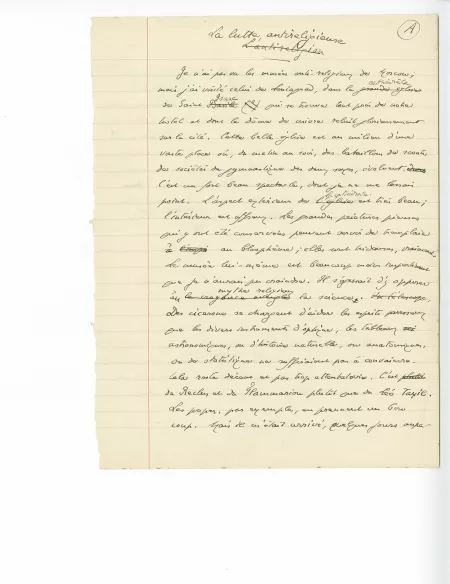 A
La lutte antireligieuse
L'antireligion
Je n'ai pas vu les musées anti-religieux de Moscou;
mais j'ai visité celui de Leningrad, dans la grande église cathédrale
de Saint Isaac qui se trouve tout près de notre
hôtel et dont le dôme de cuivre reluit glorieusement
sur la cité. Cette belle église est au milieu d'une
vaste place où, du matin au soir, des bataillons de recrues
des sociétés de gymnastique des deux sexes, évoluent.
C'est un fort beau spectacle, dont je ne me lassais
point. L'aspect extérieur de l'église cathédrale est très beau;
l'intérieur est affreux. Les grandes peintures pieuses
qui y ont été conservées peuvent servir de tremplin
à au blasphème; elles sont hideuses, vraiment.
Le musée lui-même est beaucoup moins impertinent
que je n'aurais pu craindre. Il s'agissait d'y opposer
au mythe religieux la science.
Des cicerones se chargent d'aider les esprits paresseux
que les divers instruments d'optique, les tableaux
astronomiques, ou d'histoire naturelle, ou anatomiques,
ou de statistique ne suffiraient pas à convaincre.
Cela reste décent et pas trop attentatoire. C'est plutôt
du Reclus et du Flammarion plutôt que du Léo Taxil.
Les popes, par exemple, en prennent un bon
coup. Mais il m'était arrivé, quelques jours aupa-